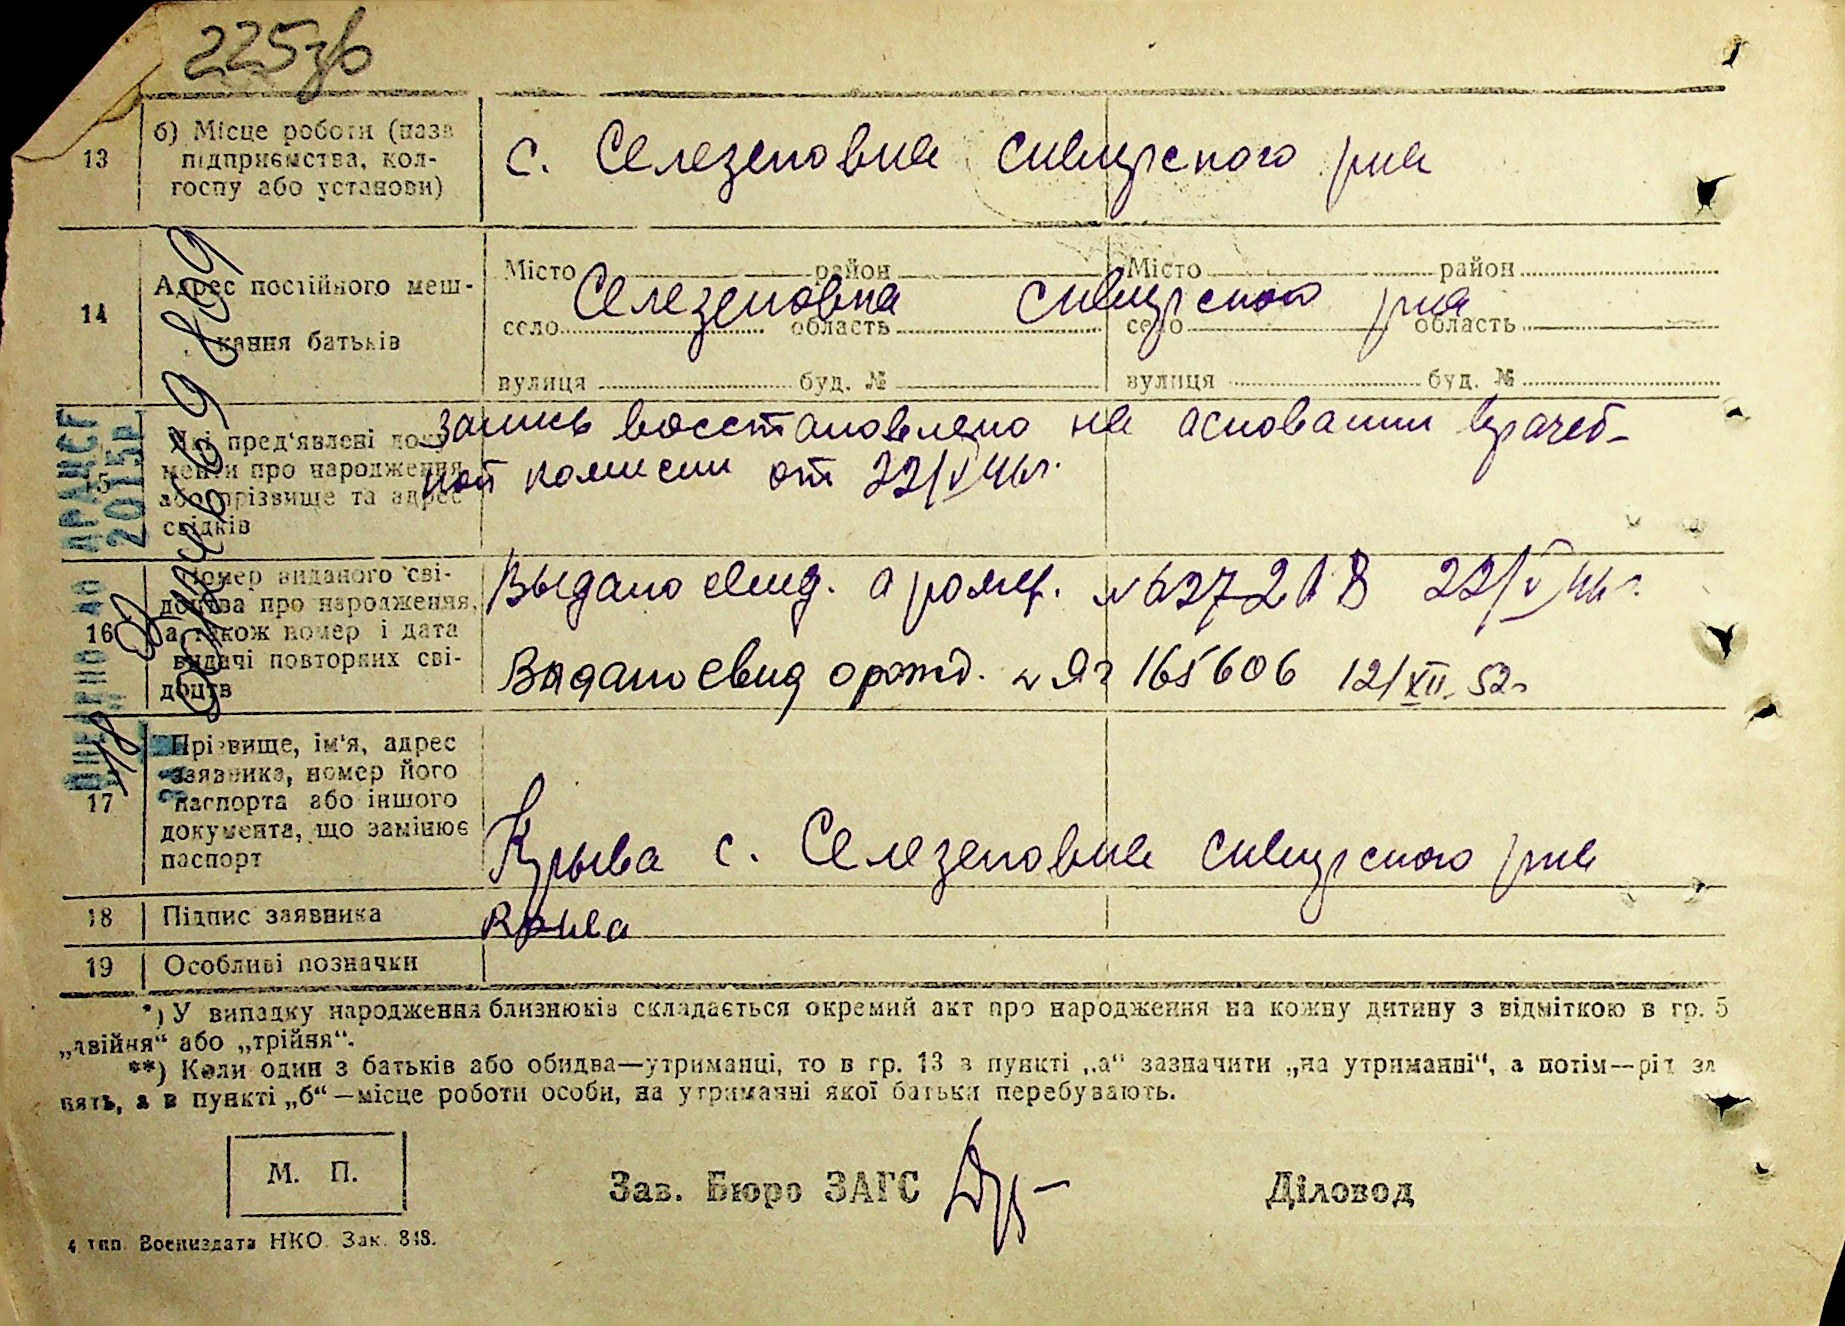 225зв
13
б) Місце роботи (назв
підприємства, кол-
госпу або установи)
с. Селезеповка сивцрского рна
14
Адрес постійного меш-
кання батьків
Місто район Місто район
Селезеновка сивцрского рна
село область село область
вулиця буд. № вулиця буд. №
Які пред'явлені доку-
менти про народження
або прізвище та адрес
свідків
запись восстановлено на асновании врачеб-
ной комисии от 22/V 46г.
16
Номер виданого сві-
доцтва про народження,
а також номер і дата
видачі повторних сві-
доцтв
Выдано свид. а рожд. № 627218 22/V 46г.
Выдано свид о рожд. № Яг 165606 12/XII. 52г
17
Прізвище, ім'я, адрес
заявника, номер його
паспорта або іншого
документа, що замінює
паспорт
Крыва с. Селезеновка сивцрского рна
18
Підпис заявника
Крыва
19
Особливі позначки
*) У випадку народження близнюків складається окремий акт про народження на кожну дитину з відміткою в гр. 5
„двійня“ або „трійня“.
**) Коли один з батьків або обидва—утриманці, то в гр. 13 в пункті „а“ зазначити „на утриманні“, а потім—рід за
нять, а в пункті „б“—місце роботи особи, на утриманні якої батьки перебувають.
М. П.
Зав. Бюро ЗАГС
Діловод
4 тип. Воениздата НКО. Зак. 848.
2015р